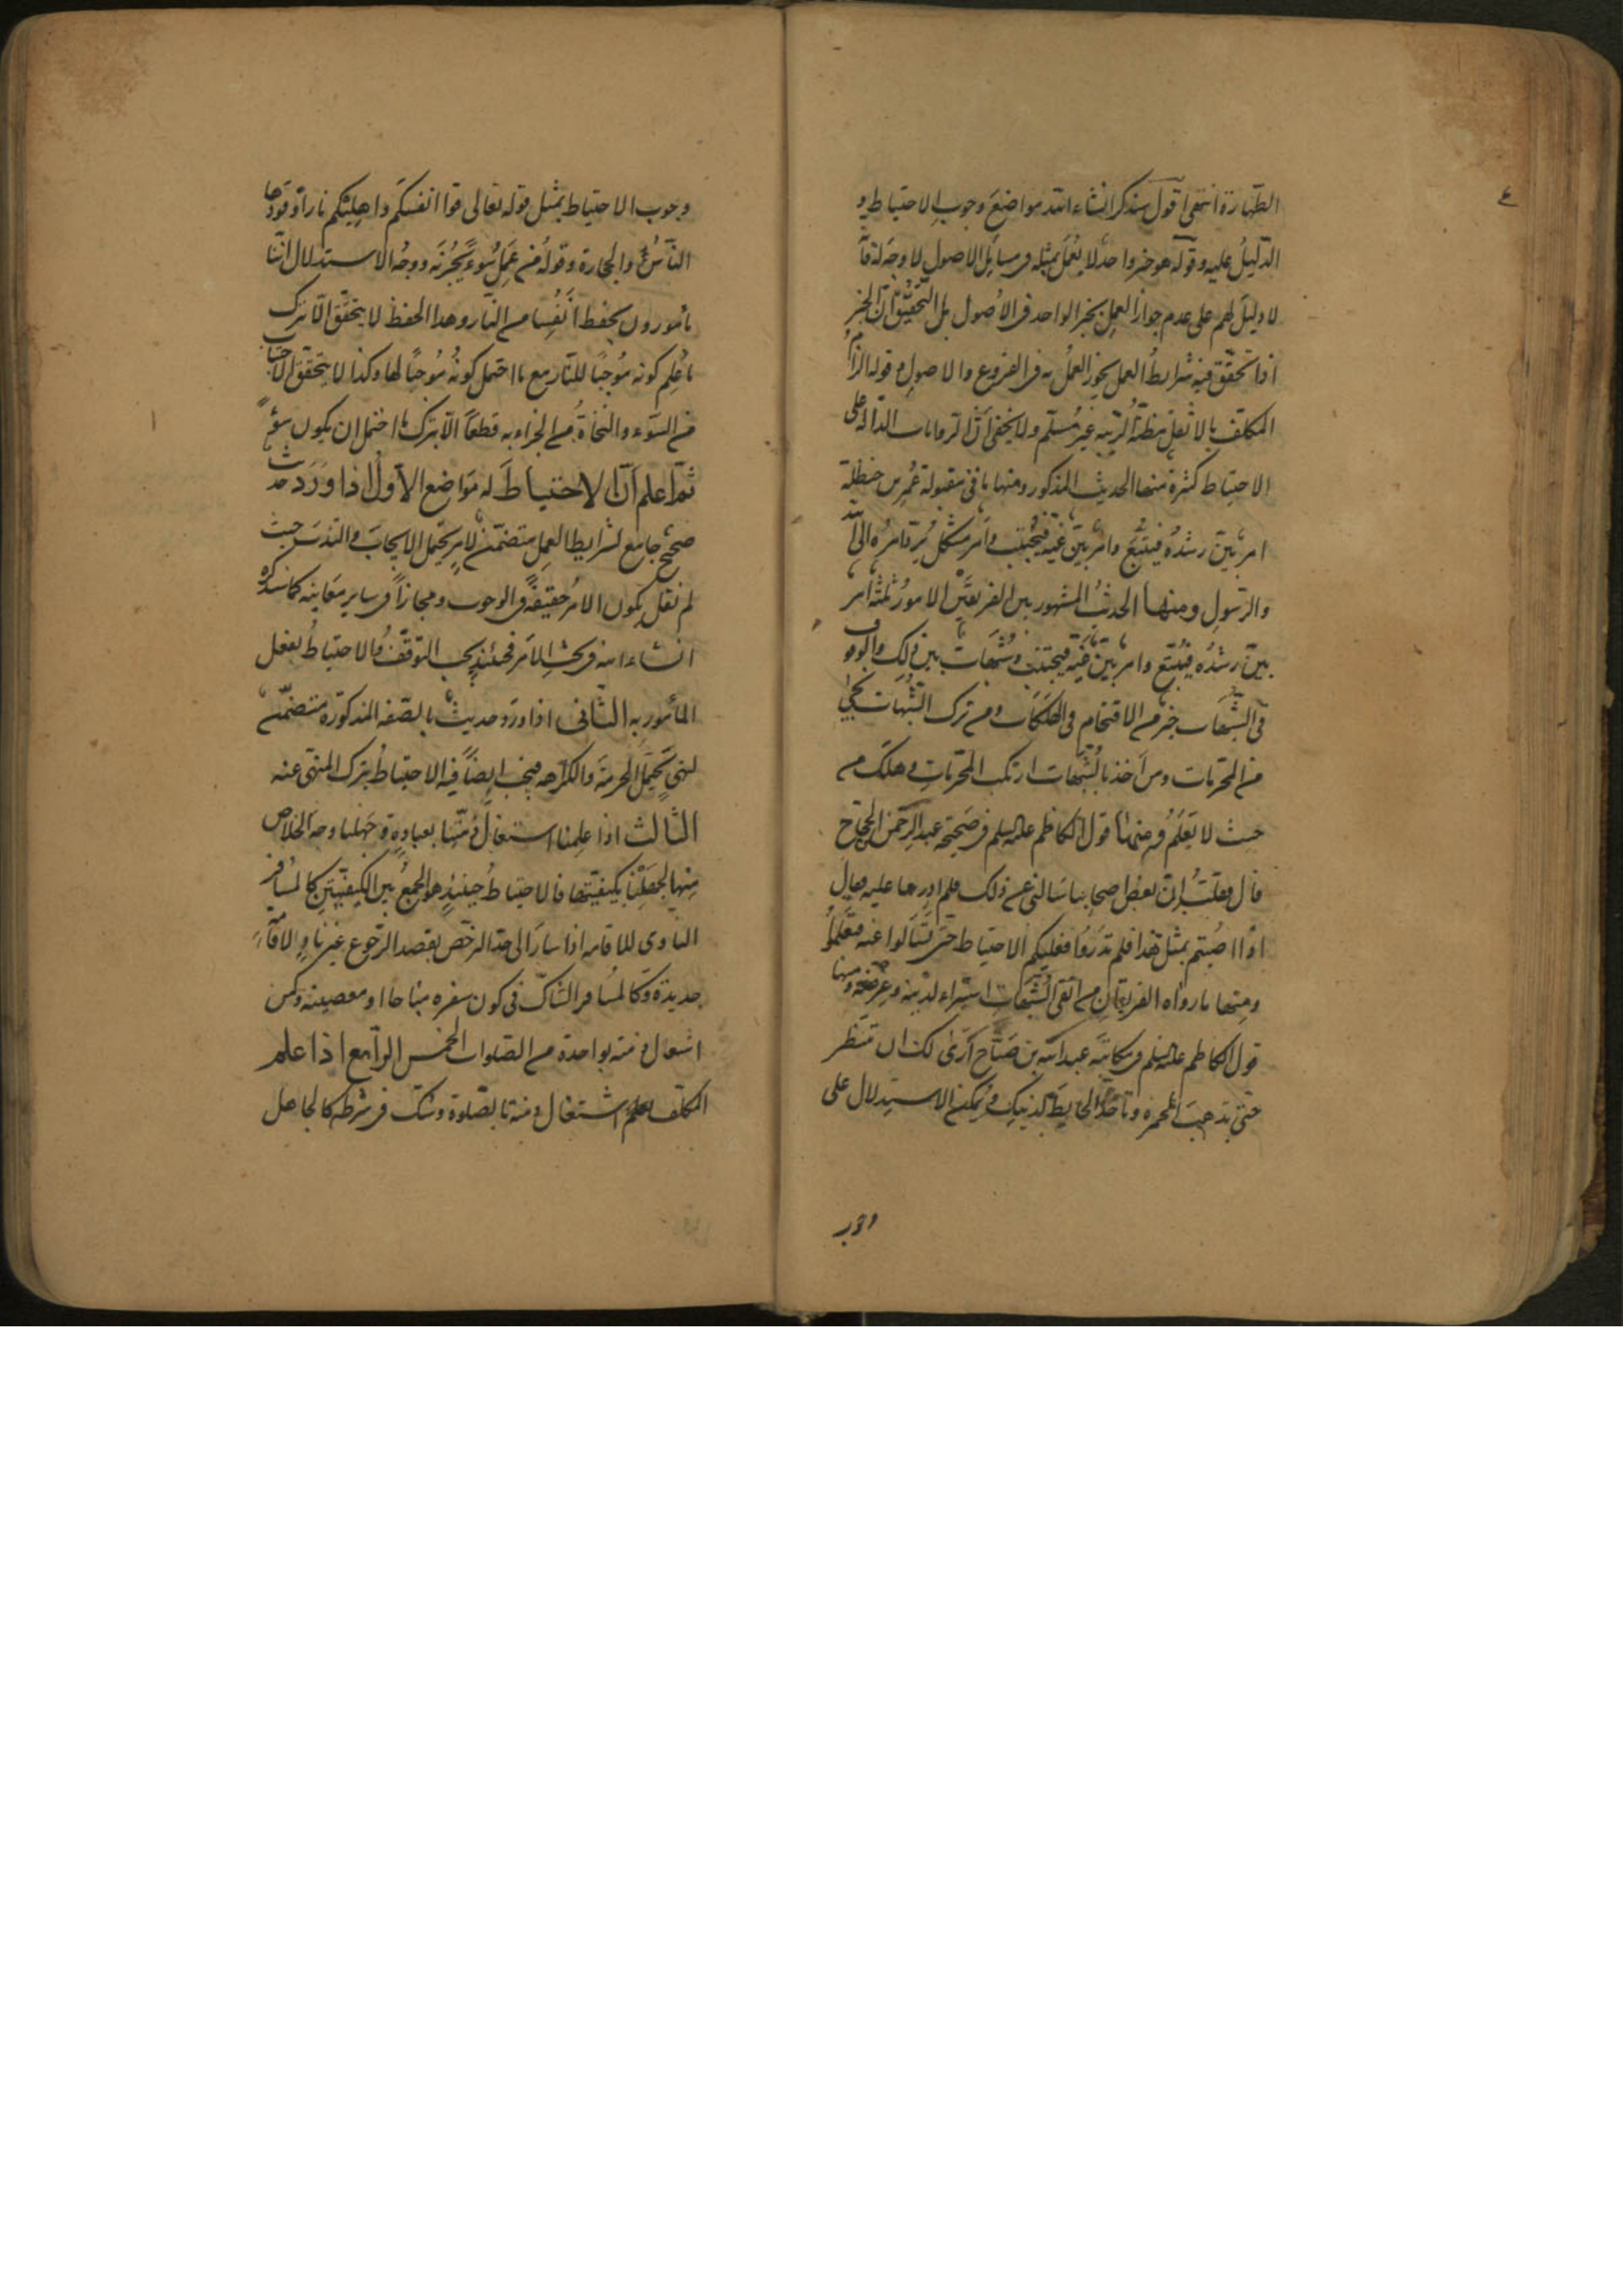 ٤
الطهارة انتهى اقول سنذكر انشاء الله مواضع وجوب الاحتياط و
الدليل عليه وقوله هو خبر واحد لا يعمل بمثله فى مسايل الاصول لا وجه له فانه
لا دليل لهم على عدم جواز العمل بخبر الواحد فى الاصول بل التحقيق ان الخبر
اذا تحقق فيه شرايط العمل يجوز العمل به فى الفروع والاصول وقوله الزام
المكلف بالاثقل مظنة الريبة غير مسلم ولا يخفى ان الروايات الدالة على
الاحتياط كثيرة منها الحديث المذكور ومنها ما فى مقبولة عمر بن حنظلة
امر بين رشده فيتبع وامر بين غيه فيجتنب وامر مشكل يرد امره الى الله
والرسول ومنها الحديث المشهور بين الفريقين الامور ثلثة امر
بين رشده فيتبع وامر بين غيه فيجتنب وشبهات بين ذلك والوقوف
فى الشبهات خير من الاقتحام فى الهلكات ومن ترك الشبهات نجى
من المحرمات ومن اخذ بالشبهات ارتكب المحرمات وهلك من
حيث لا يعلم ومنها قول الكاظم عليه السلم فى صحيحة عبد الرحمن الحجاج
قال فقلت ان بعض اصحابنا سالنى عن ذلك فلم ادر ما عليه فقال
اذا اصبتم بمثل هذا فلم تدروا فعليكم الاحتياط حتى تسالوا عنه فتعلموا
ومنها ما رواه الفريقان من اتقى الشبهات استبراء لدينه وعرضه ومنها
قول الكاظم عليه السلم فى مكاتبة عبد الله بن صباح ارى لك ان تنتظر
حتى تذهب الحمرة وتاخذ الحايطة لدينك ويمكن الاستدلال على
وجوب
وجوب الاحتياط بمثل قوله تعالى قوا انفسكم واهليكم نارا وقودها
الناس والحجارة وقوله من يعمل سوءا يجز به ووجه الاستدلال اننا
مامورون بحفظ انفسنا من النار وهذا الحفظ لا يتحقق الا بترك
ما علم كونه موجبا للنار مع ما احتمل كونه موجبا لها وكذا لا يتحقق الاجتناب
من السوء والنجاة من الجزاء به قطعا الا بترك ما احتمل ان يكون سوءا
ثم اعلم ان الاحتياط له مواضع الاول اذا ورد حديث
صحيح جامع لشرايط العمل متضمن لامر يحتمل الايجاب والندب حيث
لم نقل بكون الامر حقيقة فى الوجوب ومجازا فى ساير معانيه كما سنذكره
انشاء الله فى بحث الامر فحينئذ يجب التوقف والاحتياط بفعل
المأمور به الثانى اذا ورد حديث بالصفة المذكورة متضمن
لنهى يحتمل الحرمة والكراهة فيجب ايضا فيه الاحتياط بترك المنهى عنه
الثالث اذا علمنا اشتغال ذمتنا بعبادة وجهلنا وجه الخلاص
منها لجهلنا بكيفيتها فالاحتياط حينئذ هو الجمع بين الكيفيتين كالمسافر
الناوى للاقامه اذا سار الى حد الترخص بقصد الرجوع غير ناو لاقامة
جديدة وكالمسافر الشاك فى كون سفره مباحا او معصية وكمن
اشتغال ذمته بواحدة من الصلوات الخمس الرابع اذا علم
المكلف اشتغال ذمته بالصلوة وشك فى شرطه كالجاهل